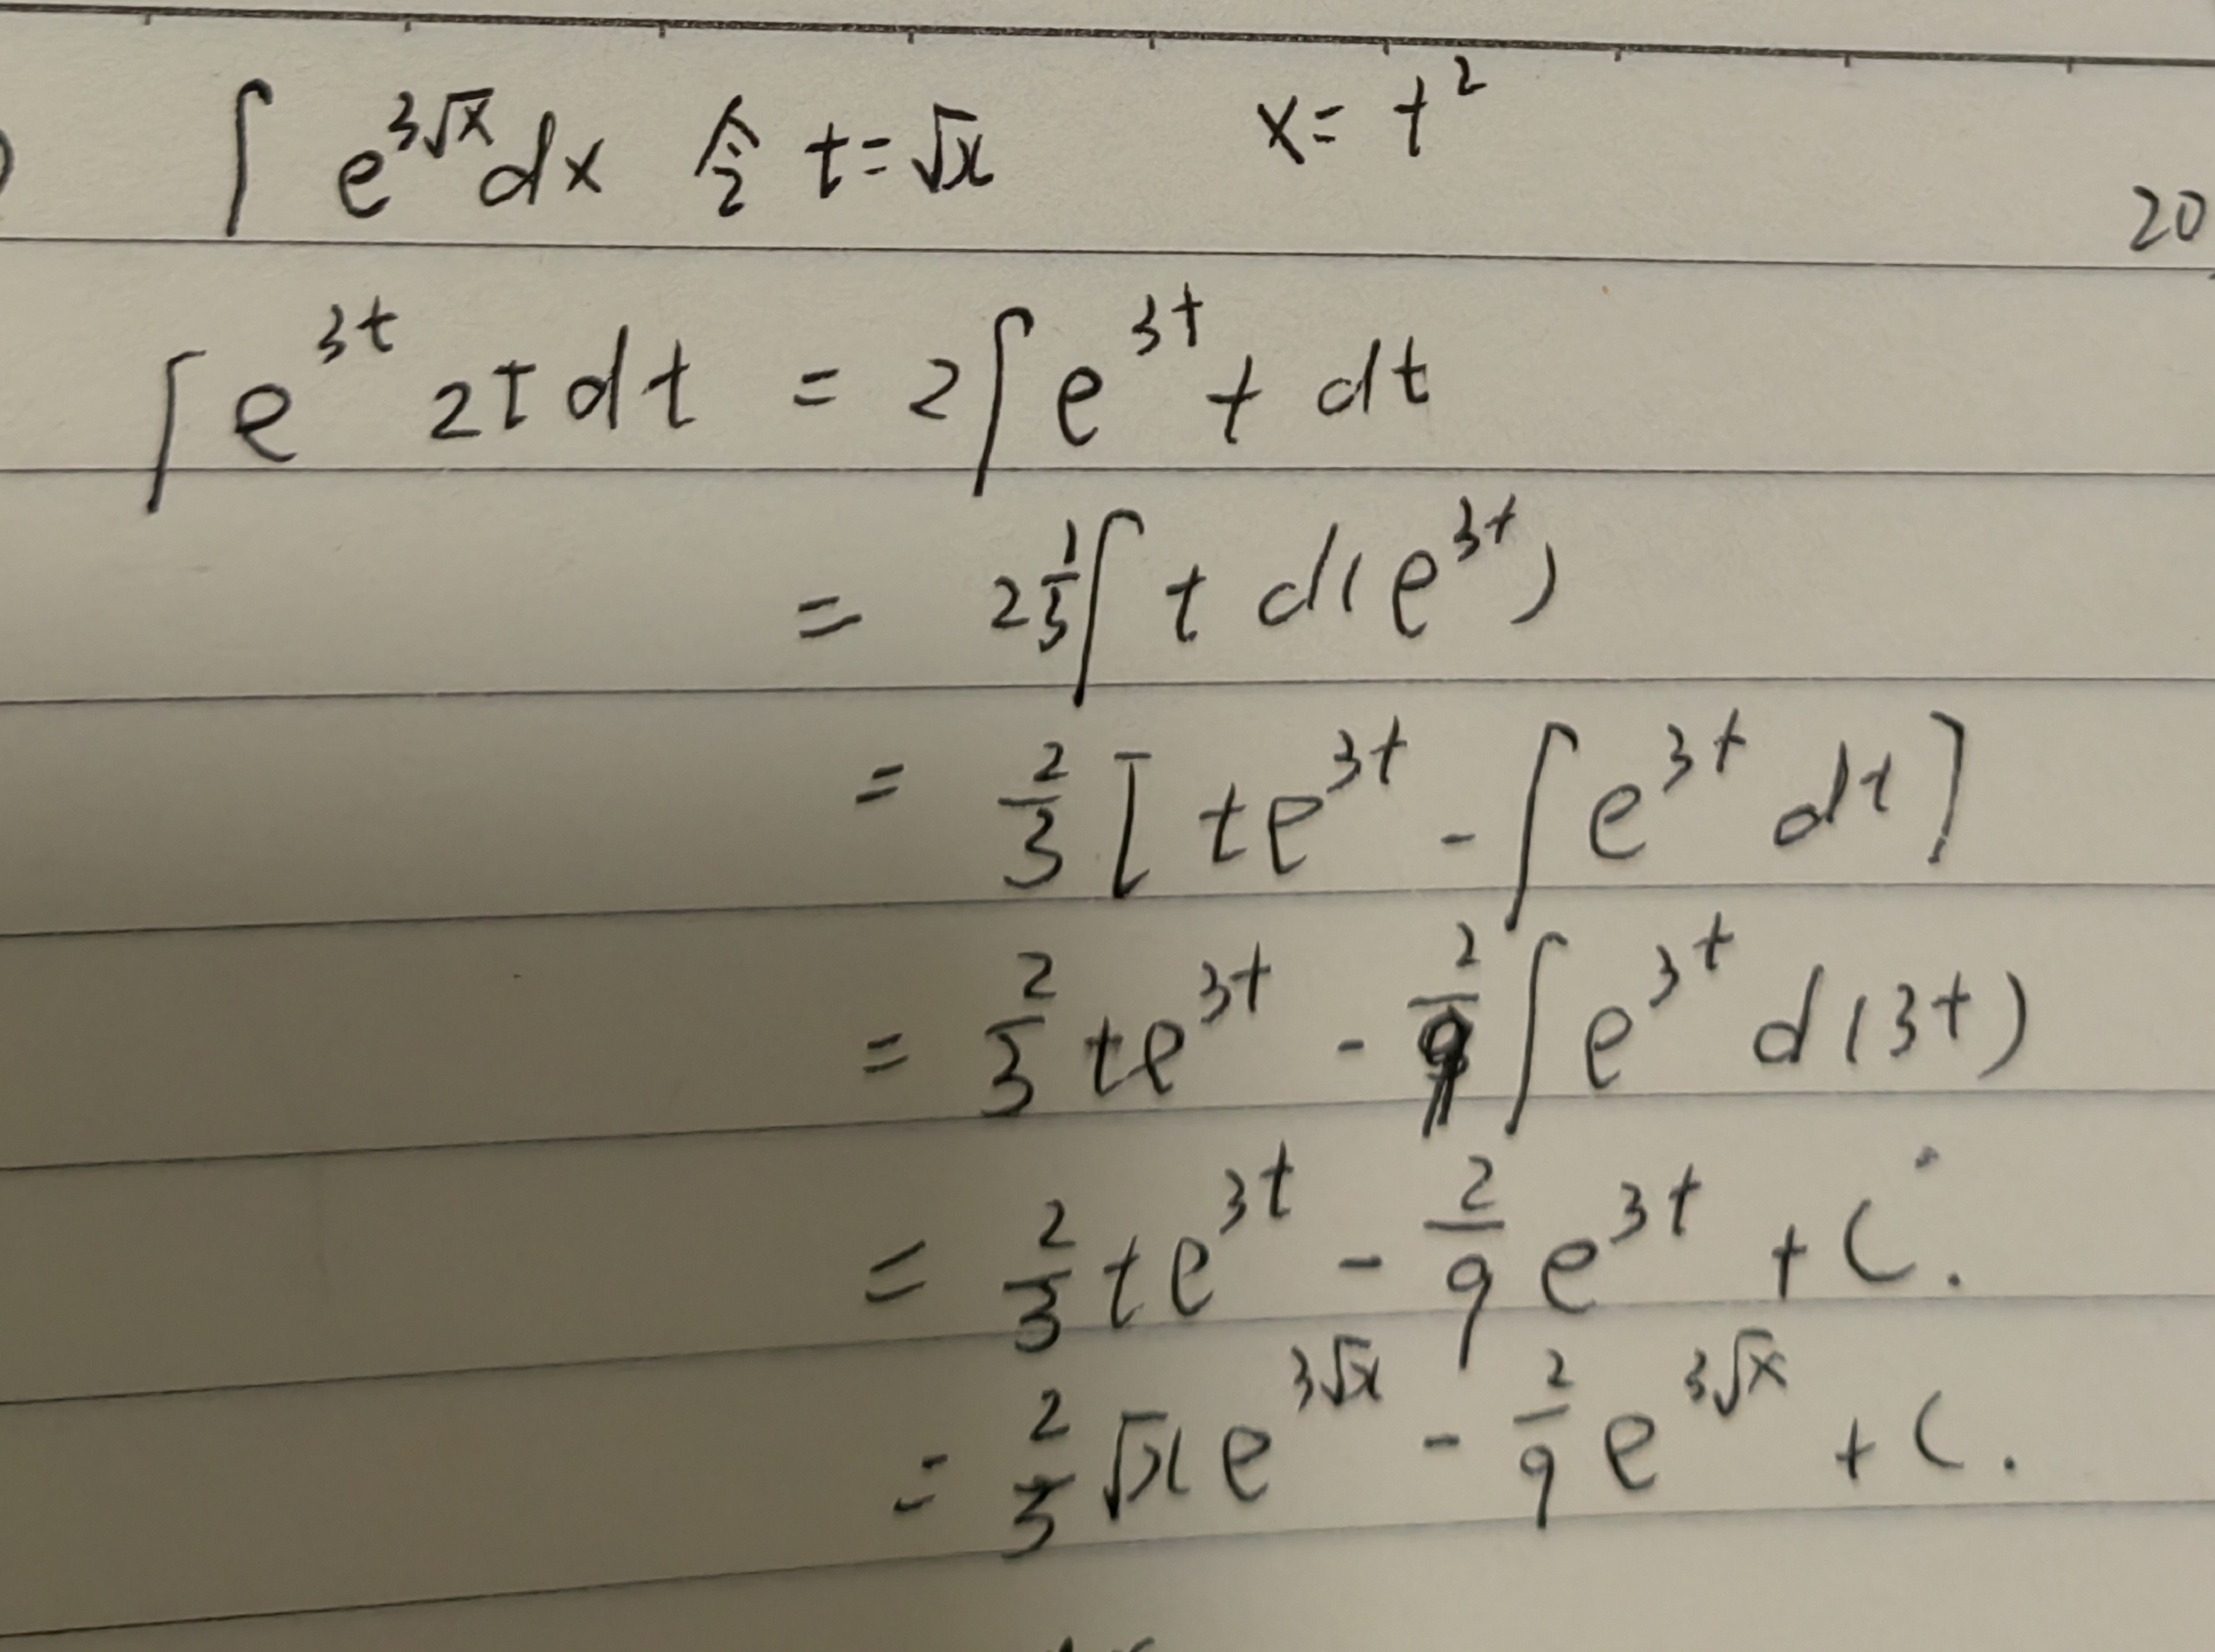 ∫ e^{3√x} dx 令 t=√x x= t^2
20
∫ e^{3t} 2t dt = 2∫ e^{3t} t dt
= 2 1/3 ∫ t d(e^{3t})
= 2/3 [ te^{3t} - ∫ e^{3t} dt ]
= 2/3 te^{3t} - 2/9 ∫ e^{3t} d(3t)
= 2/3 te^{3t} - 2/9 e^{3t} + C.
= 2/3 √x e^{3√x} - 2/9 e^{3√x} + C.